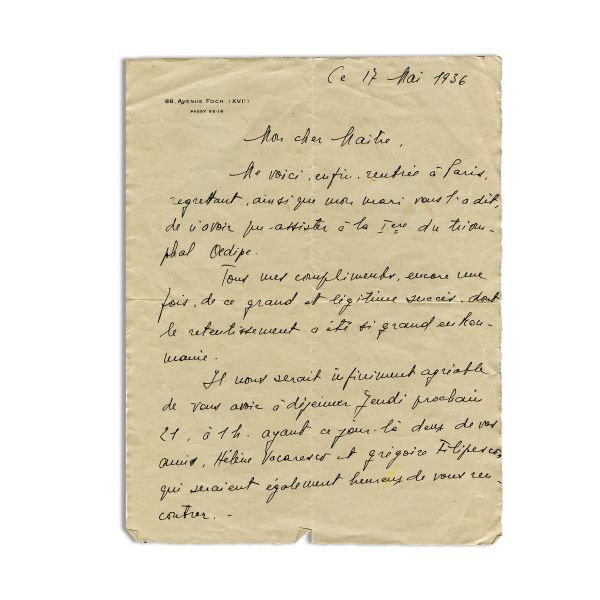 Ce 17 Mai 1936
88, Avenue Foch (XVIᵉ)
Passy 58-19
Mon cher Maître,
Me voici, enfin, rentrée à Paris,
regrettant, ainsi que mon mari vous l'a dit,
de n'avoir pu assister à la Ière du triom-
phal Oedipe.
Tous mes compliments, encore une
fois, de ce grand et légitime succès, dont
le retentissement a été si grand en Rou-
manie.
Il nous serait infiniment agréable
de vous avoir à déjeuner Jeudi prochain
21, à 1h. ayant ce jour-là deux de vos
amis, Hélène Vacaresco et Grégoire Filipesco,
qui seraient également heureux de vous ren-
contrer. -